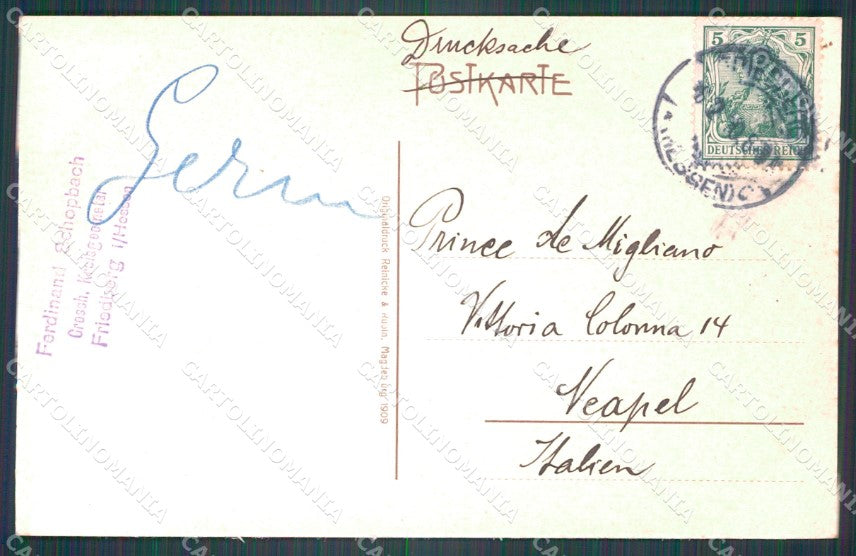 Drucksache
POSTKARTE
5 5
DEUTSCHES REICH
(HESSEN)
Prince de Migliano
Vittoria Colonna 14
Neapel
Italien
Originaldruck Reinicke & Rubin, Magdeburg 1909
Ferdinand Schopbach
Grossh. 
Friedberg i/Hessen
CARTOLINOMANIA